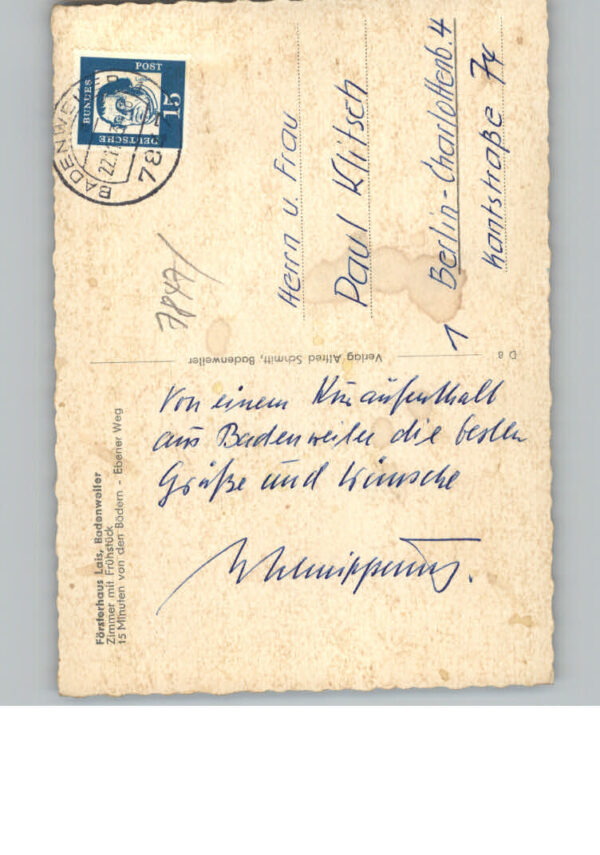 Försterhaus Lais, Badenweiler
Zimmer mit Frühstück
15 Minuten von den Bädern - Ebener Weg
DEUTSCHE
BUNDES
POST
15
BADENWEI
22.
78
7847/
Herrn u. Frau
Paul Klitsch
1 Berlin-Charlottenb. 4
Kantstraße 74
D 8
Verlag Alfred Schmitt, Badenweiler
Von einem Kuraufenthalt
aus Badenweiler die besten
Grüße und Wünsche